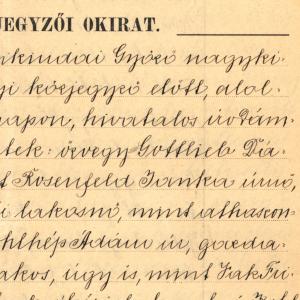 JEGYZŐI OKIRAT.
kikindai Győző nagyki-
yi közjegyző előtt, alol-
napon, hivatalos irodám-
tek: özvegy Gottlieb Dá-
t Rosenfeld Janka úrnő,
i lakosnő, mint athascon-
hlhép Ádám úr, gazda-
akos, úgy is, mint Jakfü-